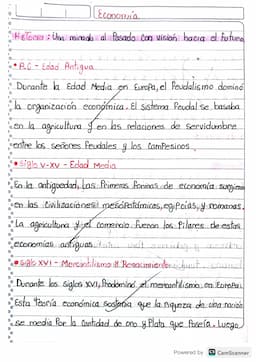 Economía
Historia: Una mirada al Pasado con visión hacia el futuro
• A.C - Edad Antigua
Durante la Edad Media en Europa, el feudalismo dominó
la organización económica. El sistema feudal se basaba
en la agricultura y en las relaciones de servidumbre
entre los señores feudales y los campesinos.
• Siglo V-XV - Edad Media
En la antiguedad, las Primeras formas de economía surgieron
en las civilizaciones mesopotámicas, egipcias, y romanas.
La agricultura y el comercio fueron los Pilares de estas
economías antiguas.
• Siglo XVI - Mercantilismo Renacimiento
Durante los siglos XVI, Predominó el mercantilismo en Europa.
Esta teoría económica sostenía que la riqueza de una nación
se media Por la cantidad de oro y Plata que Poseía. Luego
Powered by CS CamScanner